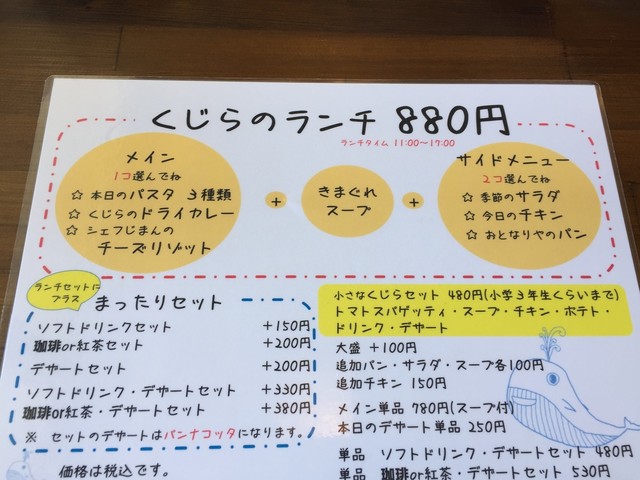 くじらのランチ 880円
ランチタイム 11:00~17:00
メイン
1コ選んでね
☆ 本日のパスタ 3種類
☆ くじらのドライカレー
☆ シェフじまんの
チーズリゾット
+
きまぐれ
スープ
+
サイドメニュー
2コ選んでね
☆ 季節のサラダ
☆ 今日のチキン
☆ おとなりやのパン
ランチセットに
プラス
まったりセット
ソフトドリンクセット +150円
珈琲or紅茶セット +200円
デザートセット +200円
ソフトドリンク・デザートセット +330円
珈琲or紅茶・デザートセット +380円
※ セットのデザートはパンナコッタになります。
価格は税込です。
小さなくじらセット 480円(小学3年生くらいまで)
トマトスパゲッティ・スープ・チキン・ポテト・
ドリンク・デザート
大盛 +100円
追加パン・サラダ・スープ各100円
追加チキン 150円
メイン単品 780円(スープ付)
本日のデザート単品 250円
単品 ソフトドリンク・デザートセット 480円
単品 珈琲or紅茶・デザートセット 530円